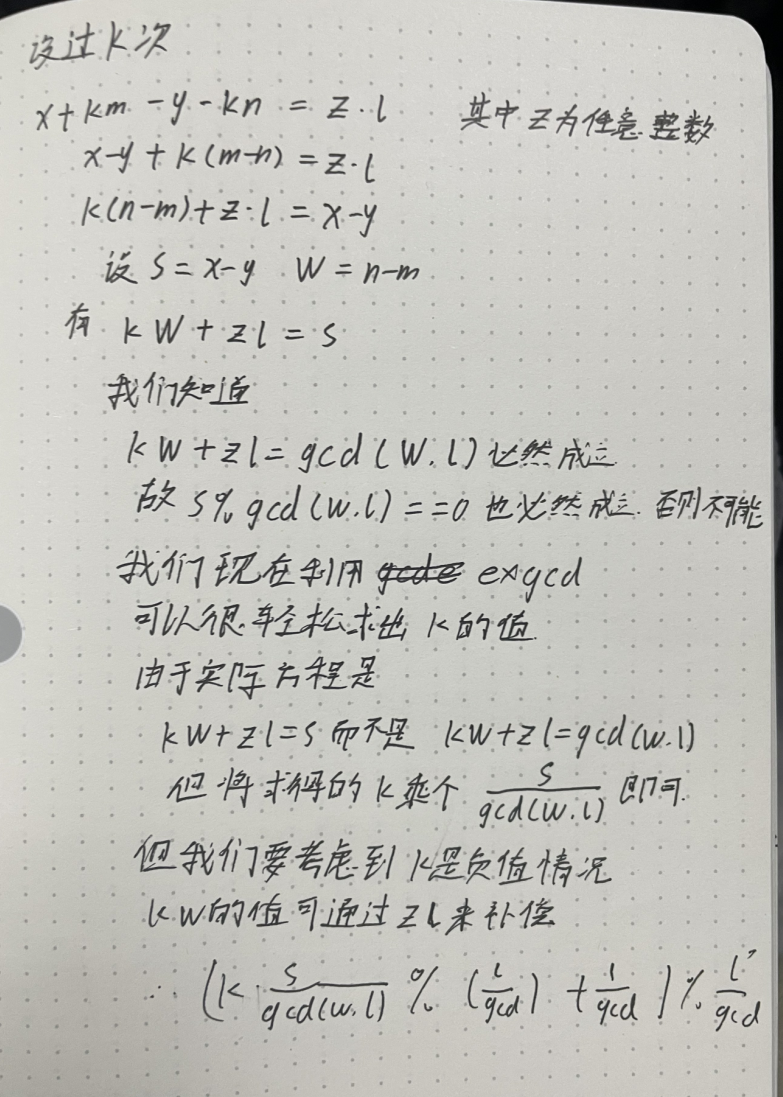 设过K次
x+km-y-kn = z·l 其中z为任意整数
x-y+k(m-n)=z·l
k(n-m)+z·l=x-y
设 S=x-y W=n-m
有 kW+zl=s
我们知道
kW+zl=gcd(W.l)必然成立
故 s%gcd(w.l)==0 也必然成立.否则不可能
我们现在利用 exgcd
可以很轻松求出k的值.
由于实际方程是
kW+zl=s 而不是 kW+zl=gcd(w.l)
但将求得的k乘个 s/gcd(w.l) 即可.
但我们要考虑到k是负值情况
kW的值可通过zl来补偿
∴ (k·s/gcd(w.l) % (l/gcd) + l/gcd) % l/gcd